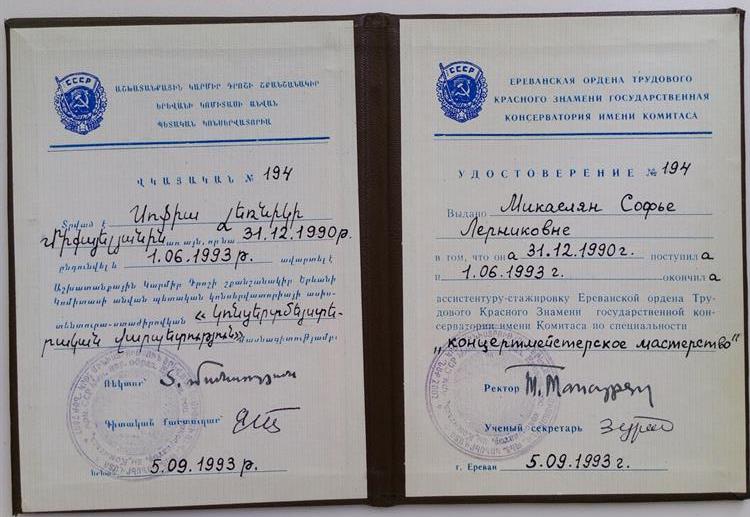 ԱՇԽԱՏԱՆՔԱՅԻՆ ԿԱՐՄԻՐ ԴՐՈՇԻ ՇՔԱՆՇԱՆԱԿԻՐ
ԵՐԵՎԱՆԻ ԿՈՄԻՏԱՍԻ ԱՆՎԱՆ
ՊԵՏԱԿԱՆ ԿՈՆՍԵՐՎԱՏՈՐԻԱ
ՎԿԱՅԱԿԱՆ № 194
Տրված է Սոֆիա Լեռնիկի
առ այն, որ նա 31.12.1990թ.
ընդունվել և 1.06.1993թ. ավարտել է
Աշխատանքային Կարմիր Դրոշի շքանշանակիր Երևանի
Կոմիտասի անվան պետական կոնսերվատորիայի ասիս-
տենտուրա-ստաժիրովկան «Կոնցերտմեյստե-
րական վարպետություն» մասնագիտությամբ:
Ռեկտոր՝
Գիտական քարտուղար՝
Երևան 5.09.1993թ.
СССР
ЕРЕВАНСКАЯ ОРДЕНА ТРУДОВОГО
КРАСНОГО ЗНАМЕНИ ГОСУДАРСТВЕННАЯ
КОНСЕРВАТОРИЯ ИМЕНИ КОМИТАСА
УДОСТОВЕРЕНИЕ № 194
Выдано Микаелян Софье
Лерниковне
в том, что она 31.12.1990г. поступила
и 1.06.1993г. окончила
ассистентуру-стажировку Ереванской ордена Тру-
дового Красного Знамени государственной кон-
серватории имени Комитаса по специальности
„концертмейстерское мастерство"
Ректор
Ученый секретарь
г. Ереван 5.09.1993г.